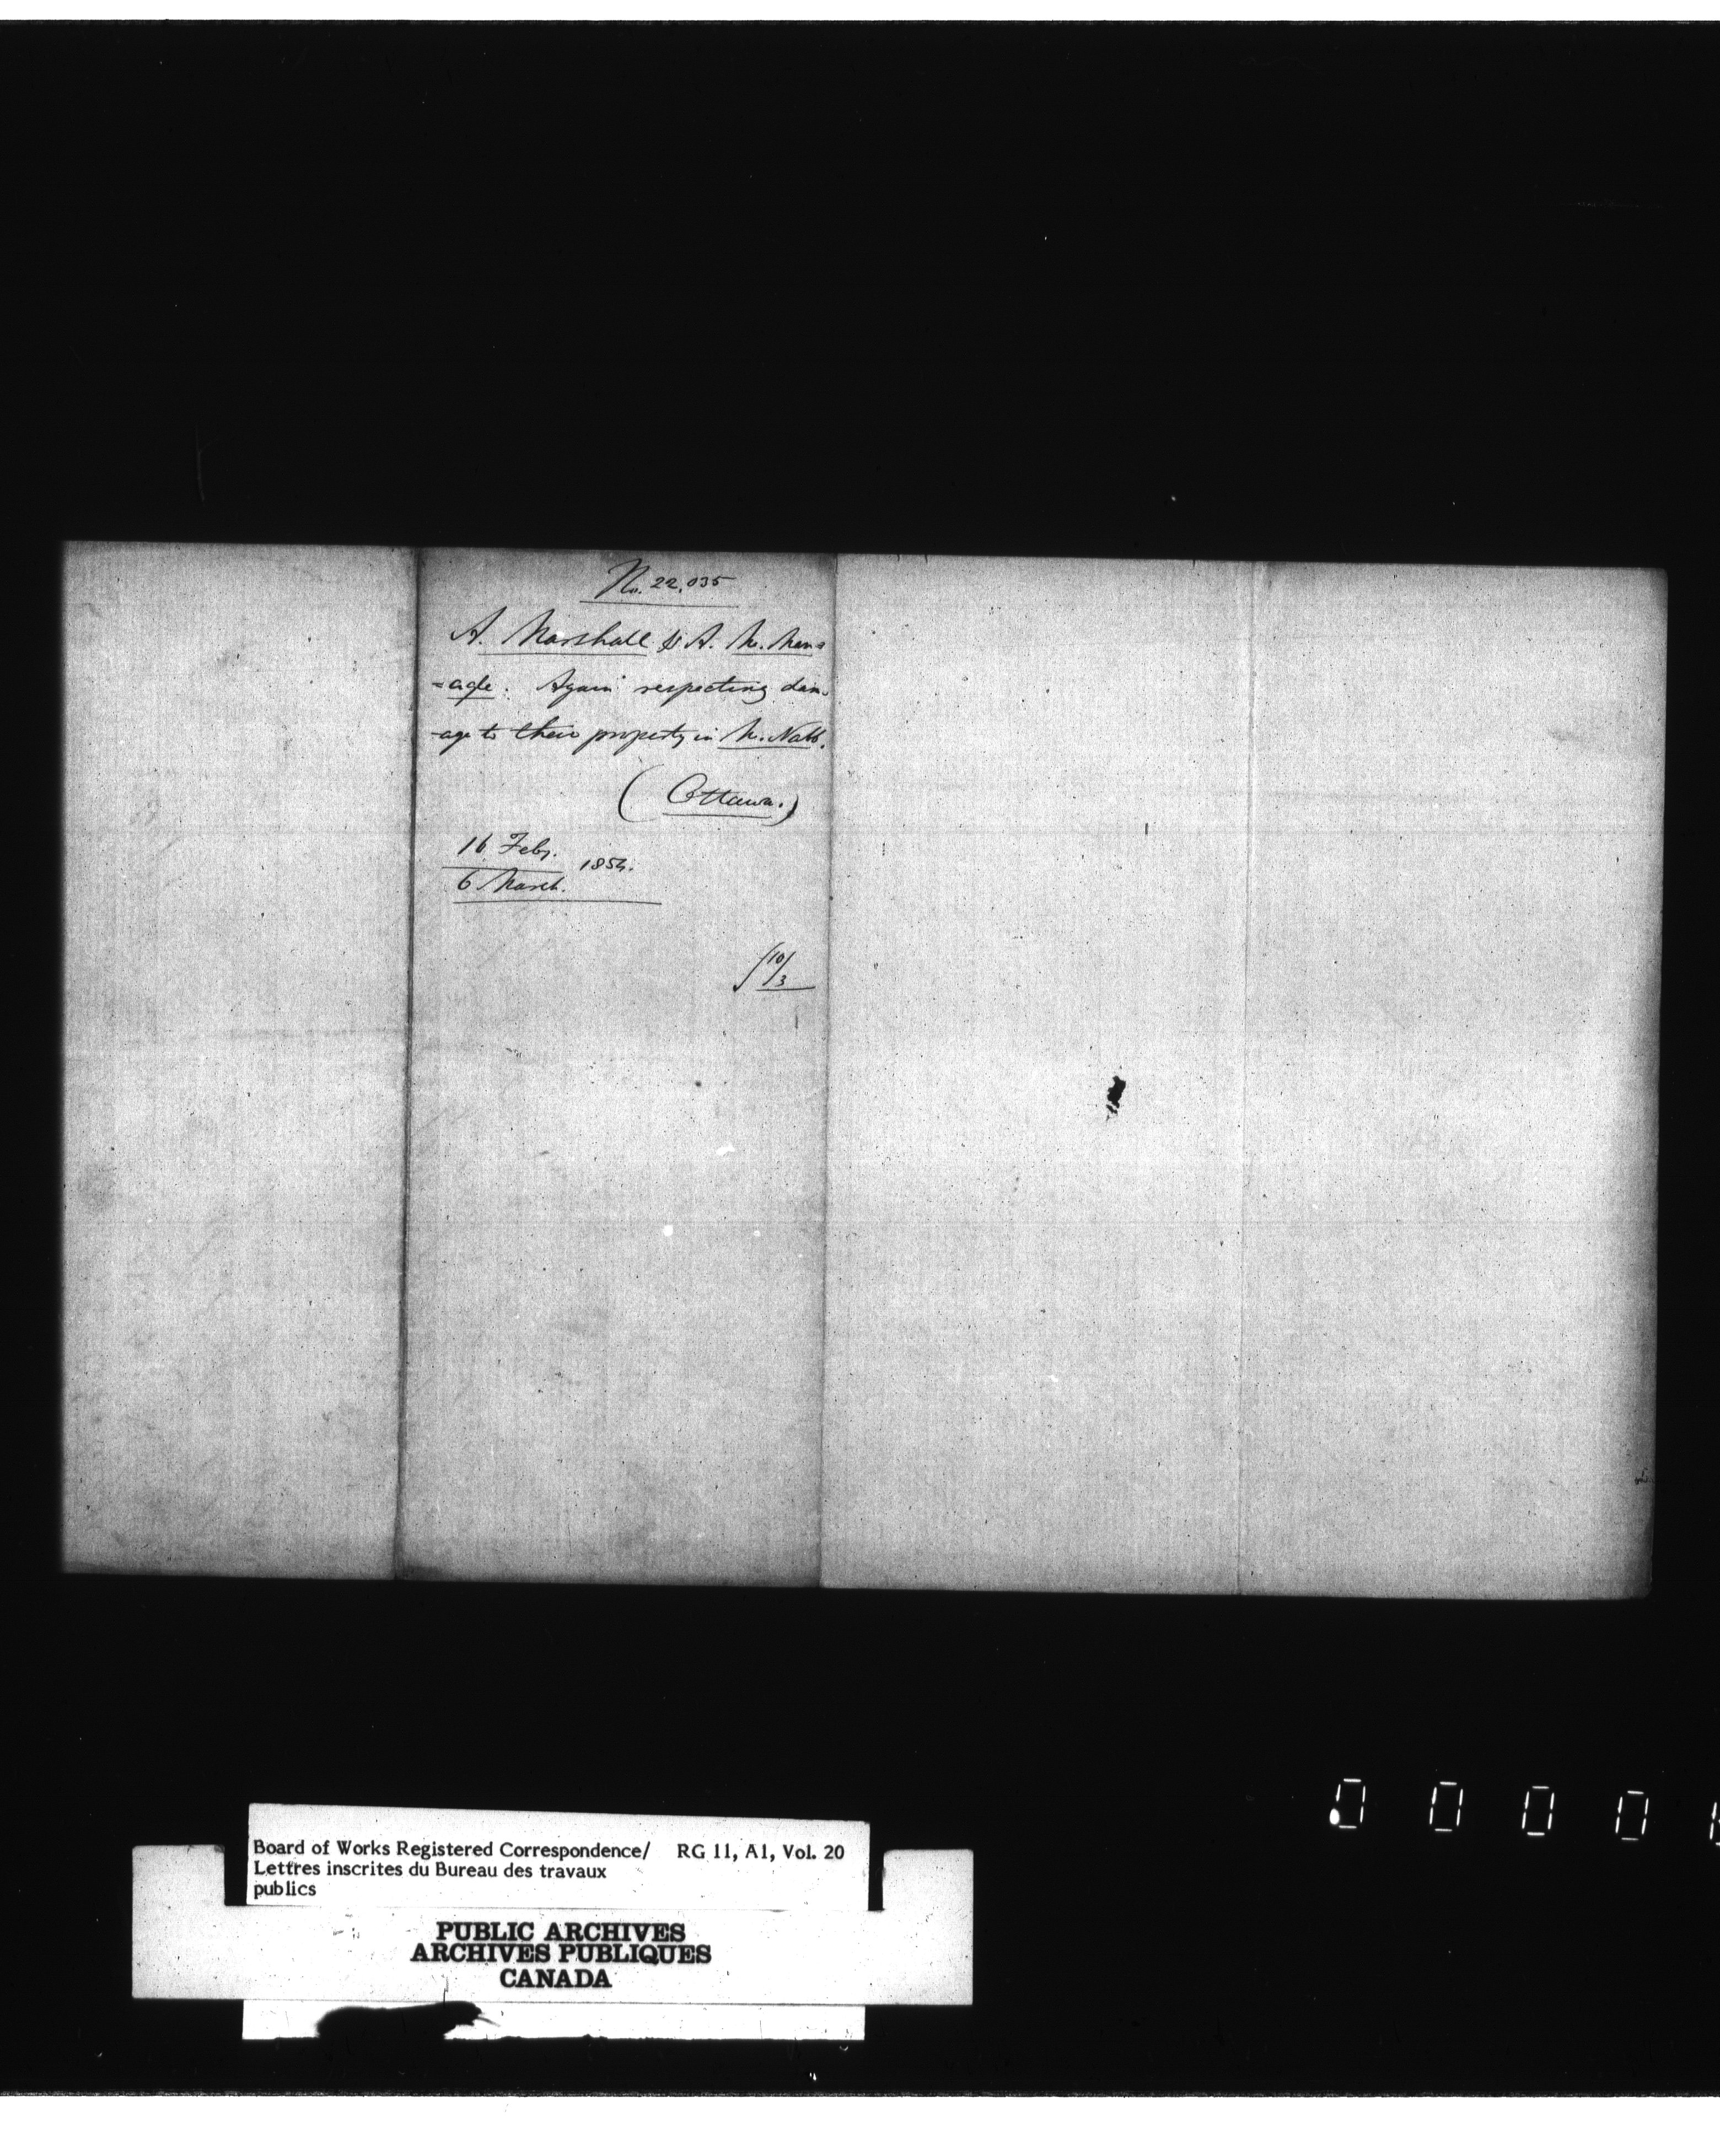 No. 22,035
A. Marshall & A. M. Men=
=agle. Again respecting dam-
-age to their property in M. Nabb.
(Ottawa.)
16 Feby. 1854.
6 March.
10/3
Board of Works Registered Correspondence/ RG 11, A1, Vol. 20
Lettres inscrites du Bureau des travaux
publics
PUBLIC ARCHIVES
ARCHIVES PUBLIQUES
CANADA
0 0 0 0